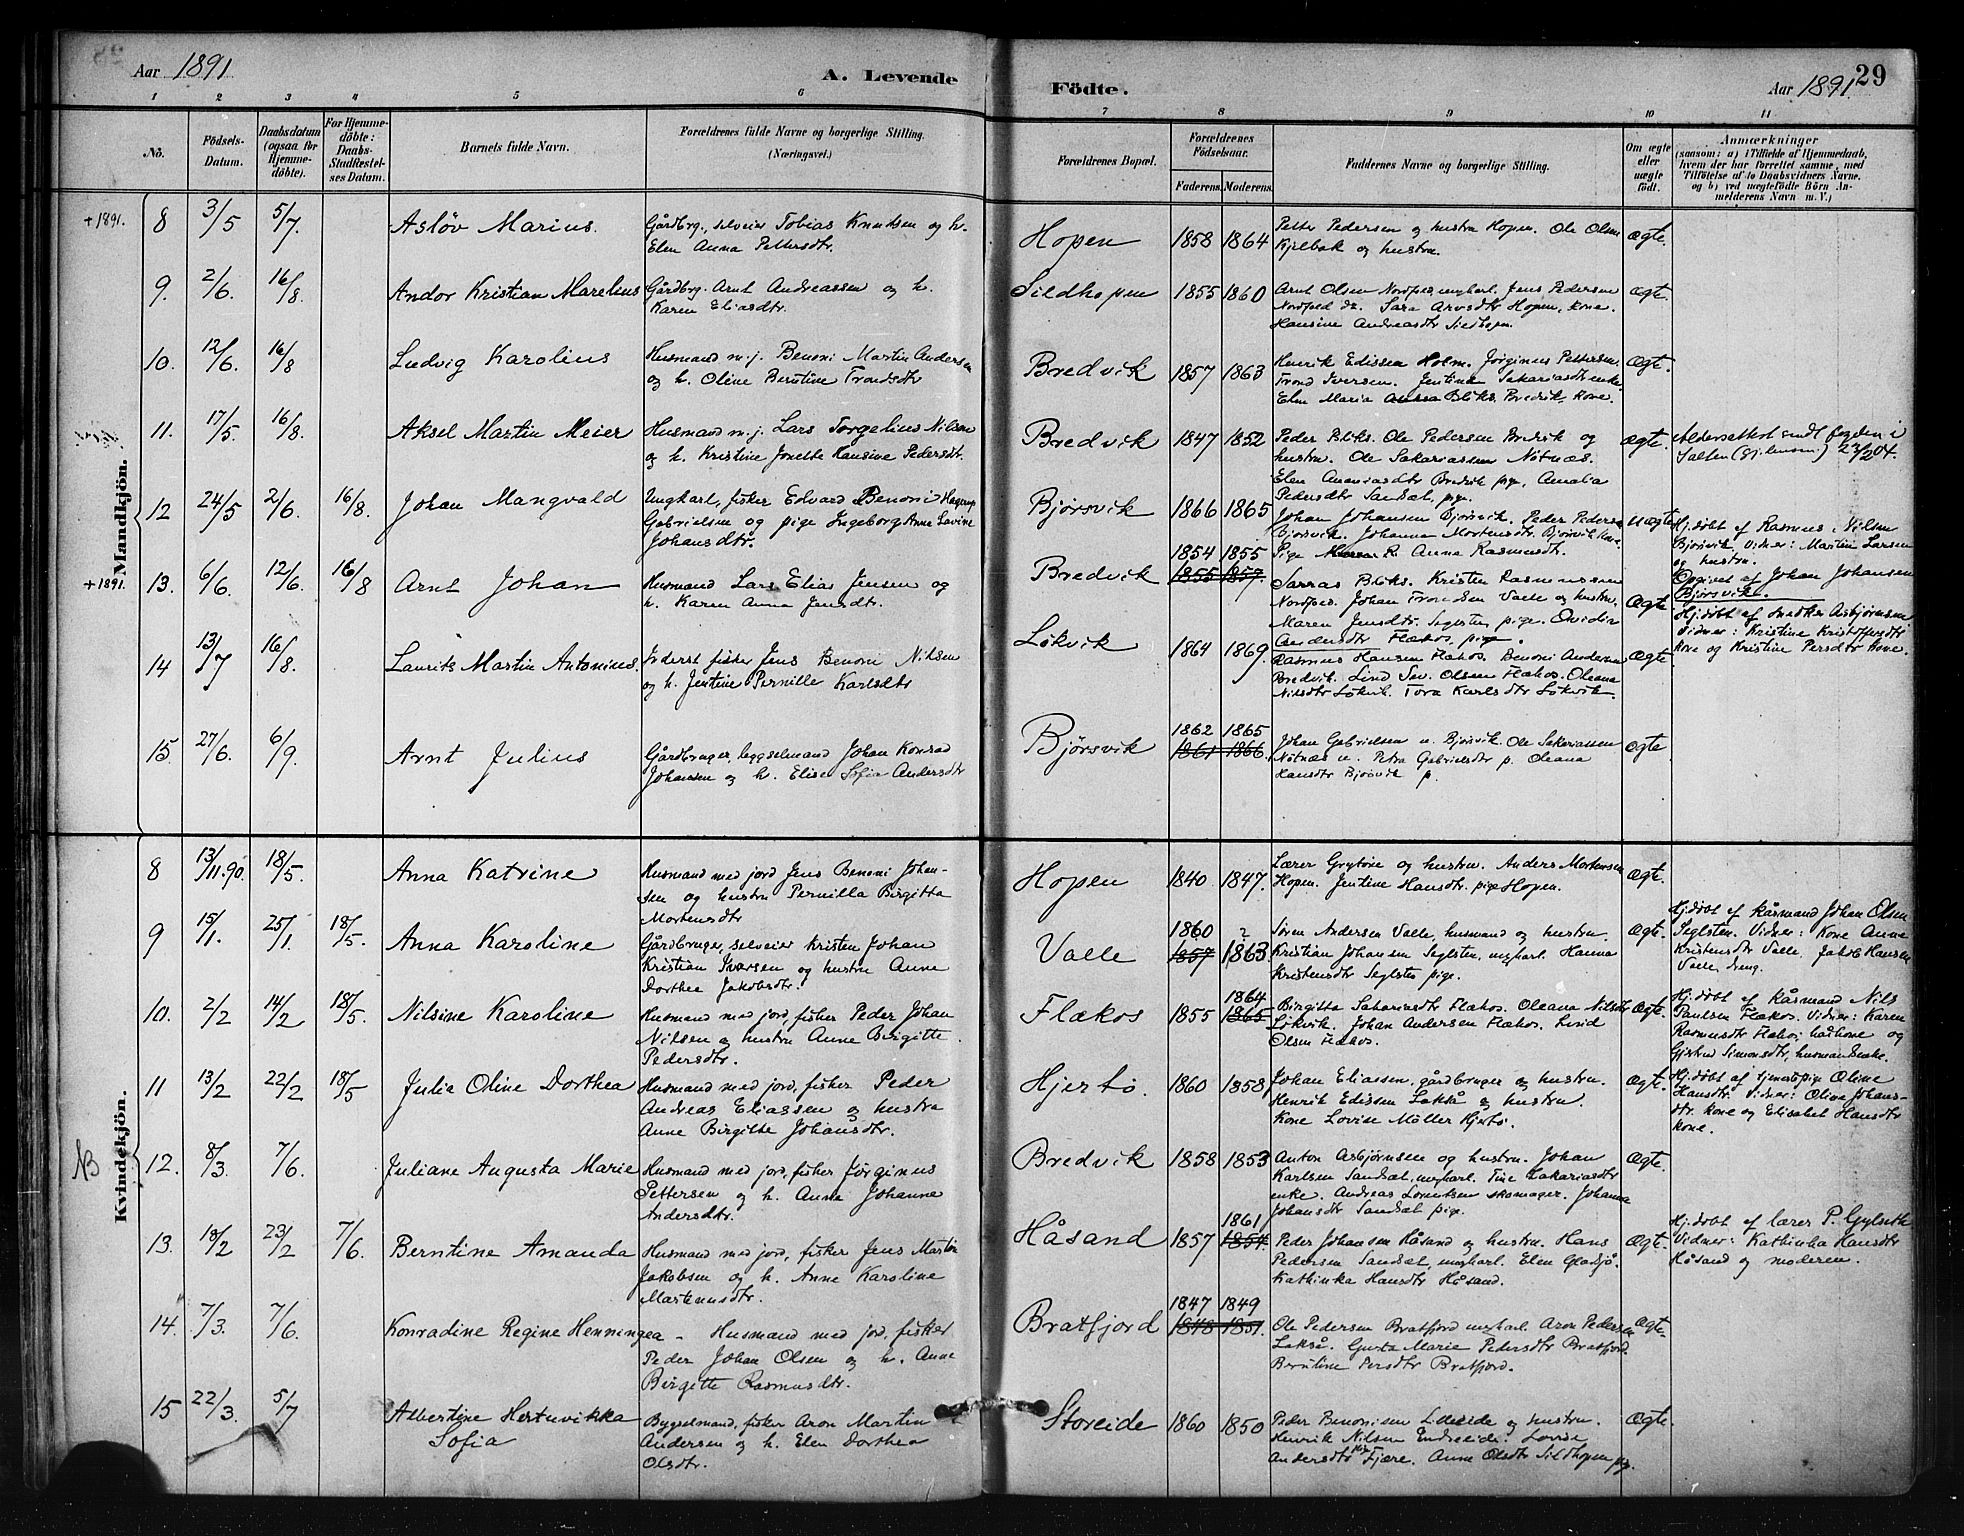 Aar 1891
A. Levende
Födte.
Aar 1891. 29
1 2 3 4 5 6 7 8 9 10 11
No.
Födsels-
Datum.
Daabsdatum
(ogsaa for
Hjemme-
döbte).
For Hjemme-
döbte:
Daabs-
Stadfæstel-
ses Datum.
Barnets fulde Navn.
Forældrenes fulde Navne og borgerlige Stilling.
(Næringsvei.)
Forældrenes Bopæl.
Forældrenes
Födselsaar.
Faderens. Moderens.
Faddernes Navne og borgerlige Stilling.
Om ægte
eller
uægte
födt.
Anmærkninger
(saasom: a) i Tilfælde af Hjemmedaab,
hvem der har forrettet samme, med
Tilföielse af to Daabsvidners Navne.
og b) ved uægtefödte Börn An-
melderens Navn m. V.)
Mandkjön.
+1891. 8 3/5 5/7 Asløv Marius.
Gårdbrg., selveier Tobias Knudsen og h.
Elen Anna Pettersdtr.
Hopen 1858 1864
Petter Pedersen og hustru Hopen. Ole Olsen
Kjelbak og hustru.
Ægte.
9. 2/6. 16/8 Andor Kristian Marelius
Gårdbrg. Arnt Andreassen og h.
Karen Eliasdtr.
Sildhopen 1855 1860
Arnt Olsen Nordfjed, ungkarl. Jens Pedersen
Nordfjed do. Sara Arnsdtr Hopen, kone.
Hansine Andreasdtr Sildhopen.
Ægte.
10. 12/6. 16/8 Ludvig Karolius
Husmand m. j. Benoni Martin Andersen
og h. Oline Berntine Trondsdtr
Bredvik 1857 1863
Henrik Edissen Holm. Jørginus Pettersen.
Trond Iversen. Jentine Sakariasdtr enke.
Elen Maria Bliks. Bredvik kone.
Ægte.
11. 17/5. 16/8. Aksel Martin Meier
Husmand m. j. Lars Torgelius Nilsen
og h. Kristine Jonette Hansine Pedersdtr.
Bredvik 1847 1852
Peder Bliks. Ole Pedersen Bredvik og
hustru. Ole Sakariassen Nøtnæs.
Elen Ananiasdtr Bredvik pige. Amalia
Pedersdtr Sandsæt, pige.
ægte.
Aldersattest sendt fogden i
Salten 22/2 04.
12 24/5 2/6. 16/8. Johan Mangvald
Ungkarl, fisker Edvard Benoni Hagerup
Gabrielsen og pige Ingeborg Anne Lavine
Johansdtr.
Bjørsvik 1866 1865
Johan Johansen Bjørsvik. Peder Pedersen
Bjørsvik. Johanna Mortensdtr. Bjørsvik kone.
Pige R. Anna Rasmusdtr.
uægte
Hj.døbt af Rasmus Nilsen
Bjørsvik. Vidner: Martin Larsen
og hustru.
Opgivet af Johan Johansen
Bjørsvik.
+1891. 13. 6/6. 12/6. 16/8 Arnt Johan
Husmand Lars Elias Jensen og
h. Karen Anna Jensdtr.
Bredvik 1854 1855
1855 1857.
Sarras Bliks. Kristen Rasmussen
Nordfjed. Johan Trondsen Valle og hustru.
Maren Jensdtr. Seglsten pige. Ovidia
Andersdtr Flækos. pige.
Ægte
Hj.døbt af Snedker Asbjørnsen
Vidner: Kristine Kristoffersdtr
kone og Kristine Persdtr kone.
14 13/7 16/8. Laurits Martin Antonius.
Inderst fisker Jens Benoni Nilsen
og h. Jentine Pernille Karlsdtr
Løkvik 1864 1869
Rasmus Hansen Flækos. Benoni Andersen
Bredvik. Lind Sev. Olsen Flækos. Oleana
Nilsdtr Løkvik. Tora Karlsdtr Løkvik.
Ægte
15. 27/6. 6/9. Arnt Julius
Gårdbruger, bygselmand Johan Konrad
Johansen og h. Elise Sofia Andersdtr
Bjørsvik 1862 1865
1861 1866.
Johan Gabrielsen u. Bjørsvik. Ole Sakariassen
Nøtnæs u. Petra Gabrielsdtr p. Oleana
Hansdtr Bjørsvik p.
ægte
Kvindekjön.
8 13/11.90. 18/5. Anna Katrine
Husmand med jord Jens Benoni Johan-
sen og hustru Pernilla Birgitta
Mortensdtr
Hopen 1840 1847.
Lærer Grytøie og hustru. Anders Mortensen
Hopen. Jentine Hansdtr. pige Hopen.
Ægte.
9 15/1. 25/1. 18/5. Anna Karoline
Gårdbruger, selveier Kristen Johan
Kristian Iversen og hustru Anne
Dorthea Jakobsdtr.
Valle 1860 ?
1857 1863
Søren Andersen Valle, husmand og hustru.
Kristian Johansen Seglsten, ungkarl. Hanna
Kristensdtr Seglsten pige.
Ægte.
Hj.døbt af Råsmand Johan Olsen
Seglsten. Vidner: Kone Anne
Kristensdtr Valle, Jakob Hansen
Valle dreng.
10. 2/2 14/2 18/5. Nilsine Karoline
Husmand med jord, fisker Peder Johan
Nilsen og hustru Anne Birgitte
Pedersdtr.
Flækos 1855 1864
1865
Birgitta Sakariasdtr Flækos. Oleana Nilsdtr
Løkvik. Johan Andersen Flækos. Lind
Olsen Flækos.
Ægte.
Hj.døbt af Råsmand Nils
Paulsen Flækos. Vidner: Karen
Rasmusdtr Flækos, kone og
Gjertrud Simonsdtr, husmandsenke.
11 13/2 22/2 18/5 Julia Oline Dorthea
Husmand med jord, fisker Peder
Andreas Eliassen og hustru
Anne Birgitte Johansdtr.
Hjertø. 1860 1858
Johan Eliassen, gårdbruger og hustru.
Henrik Edissen Lakså og hustru.
Kone Lovise Möller Hjertø.
Ægte.
Hj.døbt af tjenestepige Oline
Hansdtr. Vidner: Olive Johans-
dtr. kone og Elisabet Hansdtr
kone.
NB 12. 8/3 7/6. Juliane Augusta Marie
Husmand med jord, fisker Jørginus
Pettersen og h. Anna Johanne
Andersdtr.
Bredvik 1858 1853
Anton Asbjørnsen og hustru. Johan
Karlsen Sandsæt, ungkarl. Tine Zakariasdtr
enke. Andreas Lorentsen skomager. Johanna
Johansdtr Sandsæt pige.
Ægte.
13. 18/2 23/2 7/6. Berntine Amanda
Husmand med jord, fisker Jens Martin
Jakobsen og h. Anne Karoline
Martinusdtr.
Håsand 1857 1861
1854.
Peder Johansen Håsand og hustru. Hans
Pedersen Sandsæt, ungkarl. Elen Gladsjø.
Kathinka Hansdtr Håsand.
Ægte.
Hj.døbt af lærer P. Gylseth
Vidner: Kathinka Hansdtr
Håsand og moderen.
14. 7/3. 7/6. Konradine Regine Henningea -
Husmand med jord, fisker
Peder Johan Olsen og h. Anne
Birgitte Rasmusdtr.
Bratfjord 1847 1849
1848 1851.
Ole Pedersen Bratfjord ungkarl. Aron Pedersen
Lakså. Gusta Marie Pedersdtr Bratfjord.
Berntine Persdtr Bratfjord.
Ægte.
15 22/3. 5/7 Albertine Hertuvikka
Sofia
Bygselmand, fisker Aron Martin
Andersen og h. Elen Dorthea
Olsdtr.
Storeide 1860 1850
Peder Benonisen Lilleeide og hustru.
Henrik Nilsen Endreeide. Lovise
Andersdtr Fjære. Anne Olsdtr Sildhopen pig.
Ægte.